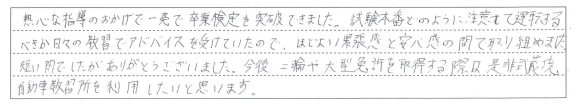 熱心な指導のおかげで一発で卒業検定を突破できました。試験本番どのように注意して運転する
べきか日々の教習でアドバイスを受けていたので、ほどよい緊張感と安心感の間で取り組めました
短い間でしたがありがとうございました。今後二輪や大型免許を取得する際は是非武蔵境
自動車教習所を利用したいと思います。